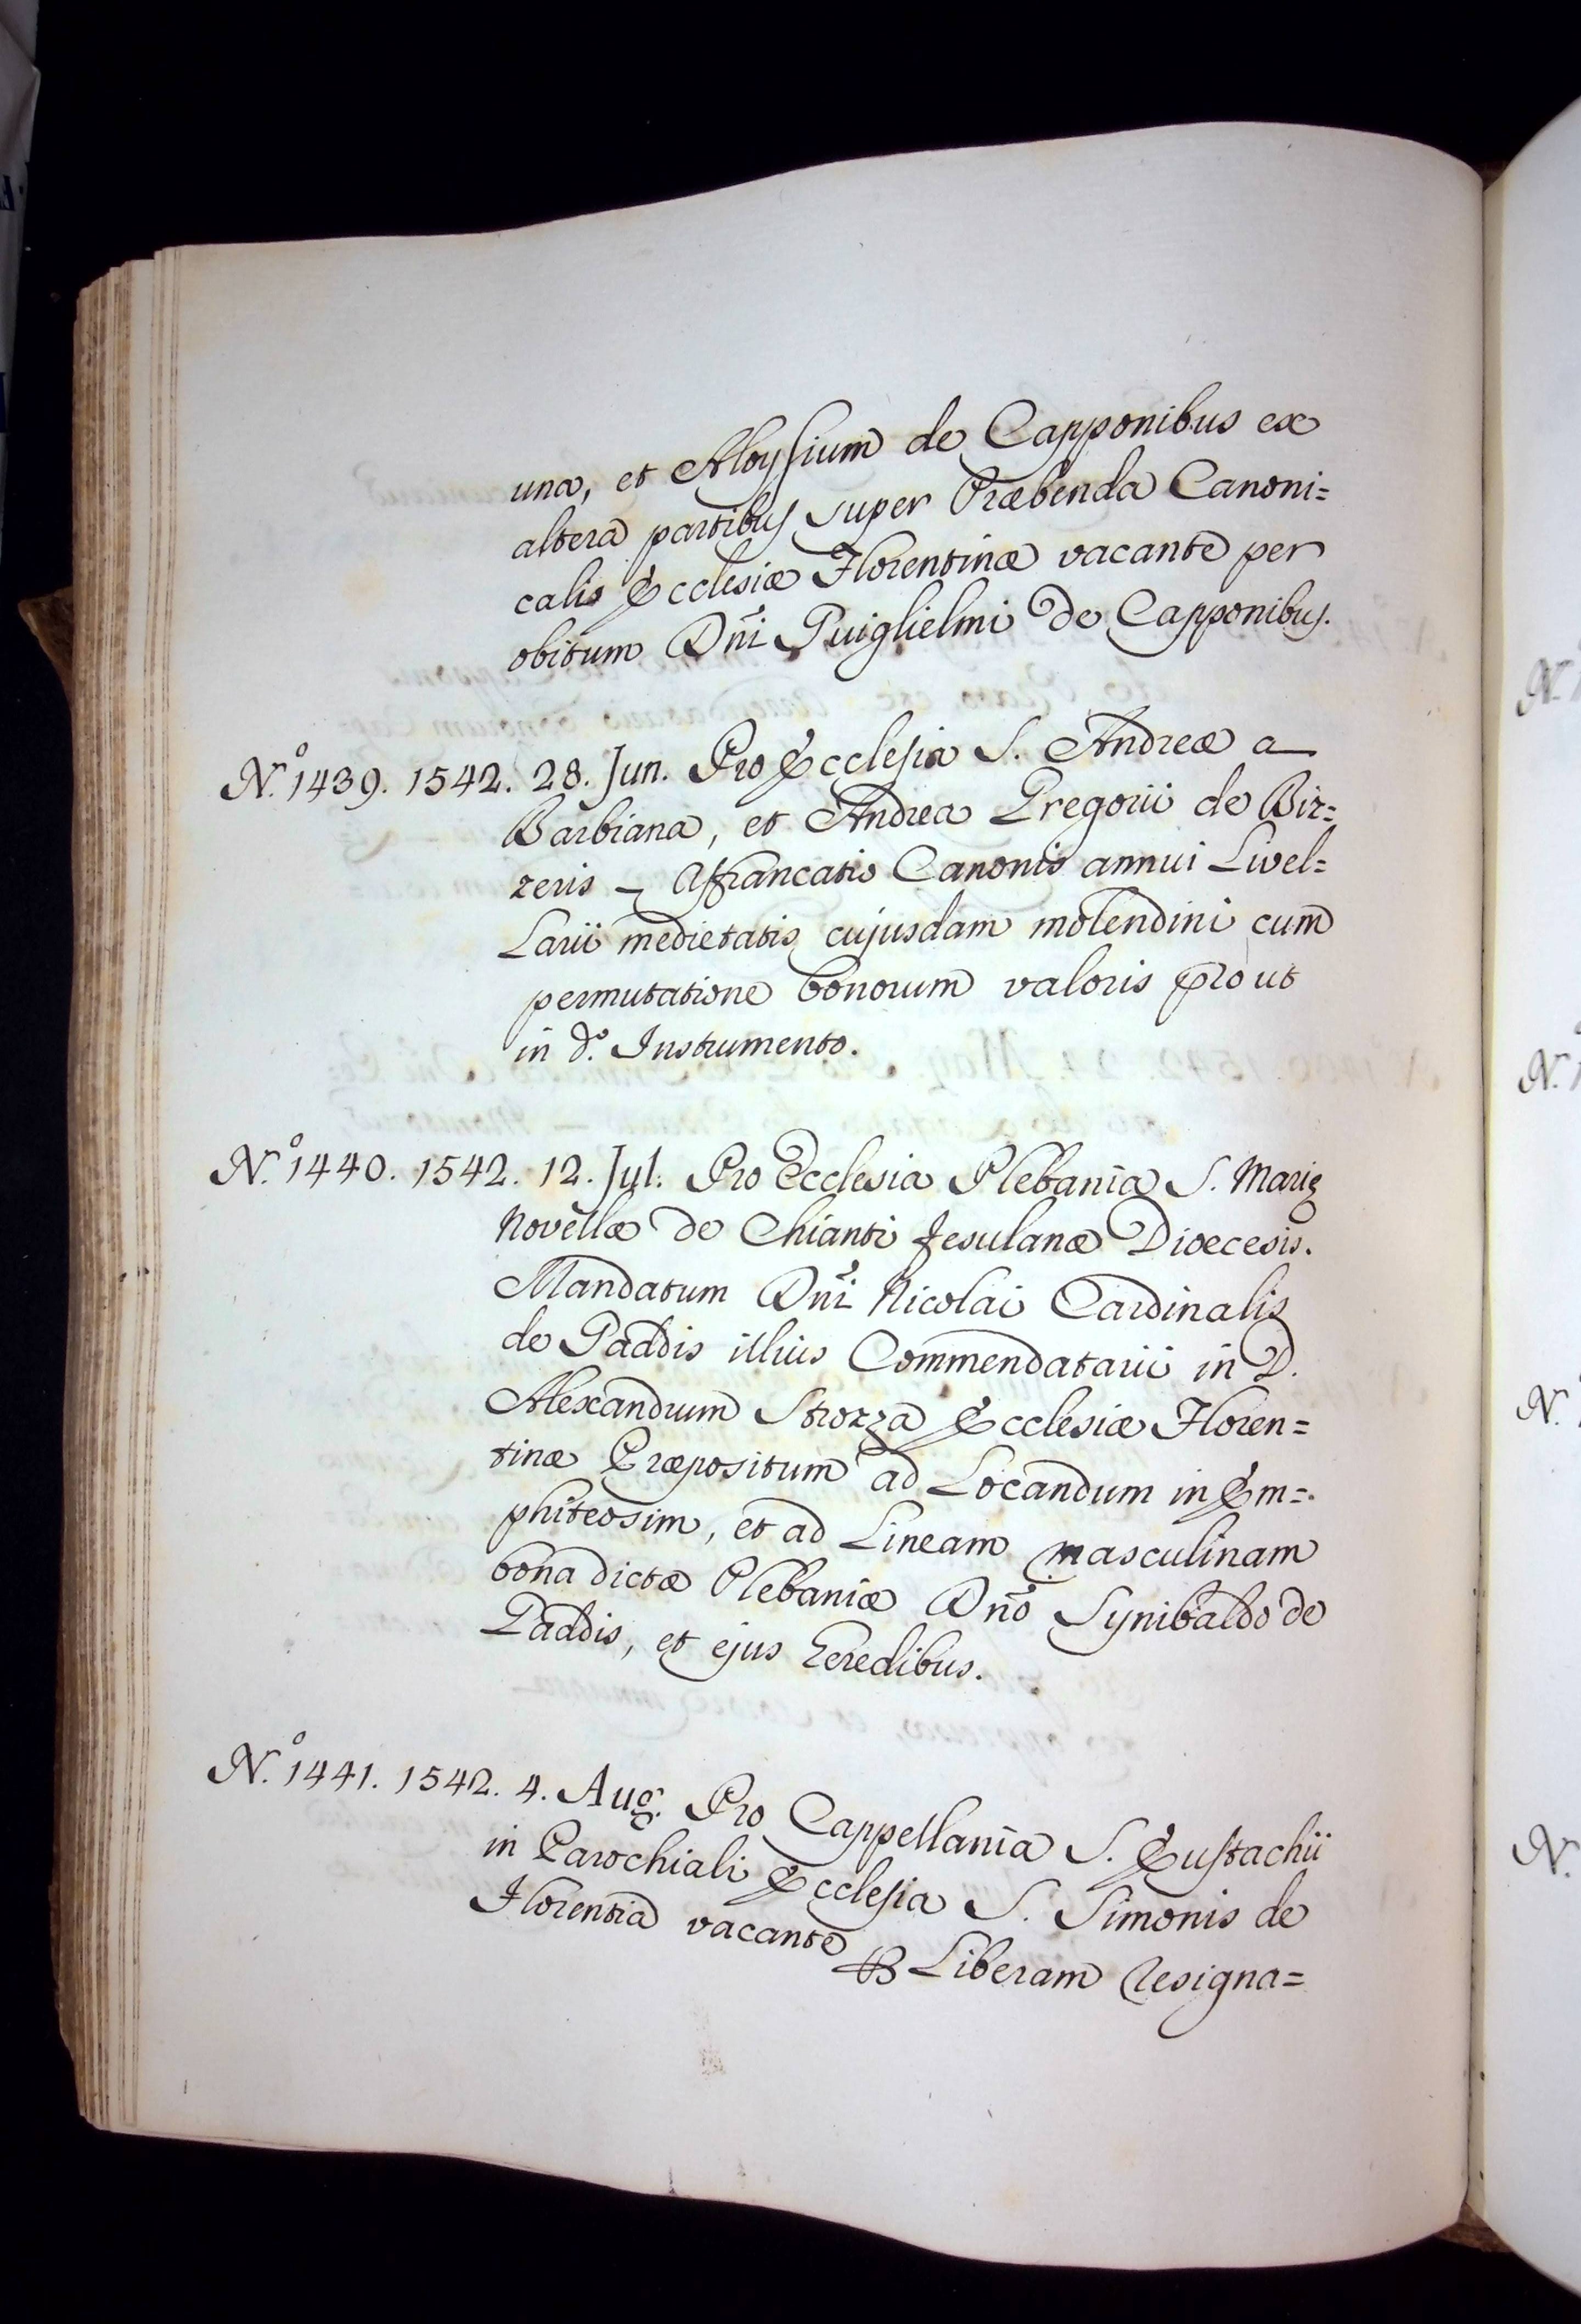 una, et Aloysium de Capponibus ex
altera partibus super Præbenda Canoni=
calis Ecclesiæ Florentinæ vacante per
obitum Dñi Guiglielmi de Capponibus.
N.º 1439. 1542. 28. Jun. Pro Ecclesia S. Andreæ a
Barbiana, et Andrea Gregorii de Biz=
zeris - Affrancatio Canonis annui Livel=
Larii medietatis cujusdam molendini cum
permutatione bonorum valoris prout
in d.º Instrumento.
N.º 1440. 1542. 12. Jul. Pro Ecclesia Plebania S. Marię
Novellæ de Chianti Fesulanæ Dioecesis.
Mandatum Dñi Nicolai Cardinalis
de Gaddis illius Commendatarii in D.
Alexandrum Strozza Ecclesiæ Floren=
tinæ Præpositum ad Locandum in Em=
phiteosim, et ad Lineam masculinam
bona dictæ Plebaniæ Dño Synibaldo de
Gaddis, et ejus heredibus.
N.º 1441. 1542. 4. Aug. Pro Cappellania S. Eustachii
in Parochiali Ecclesia S. Simonis de
Florentia vacante
Liberam Resigna=
N.
N.
N.
N.